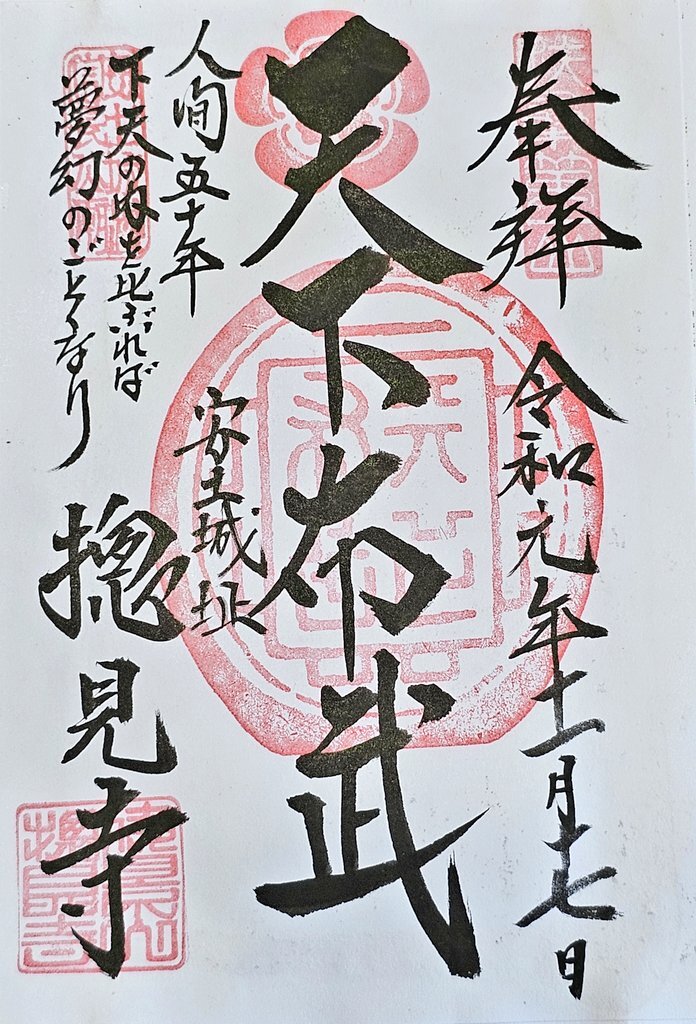 奉拝
令和元年十一月十七日
天下布武
人間五十年
下天の内を比ぶれば
夢幻のごとくなり
安土城址
摠見寺